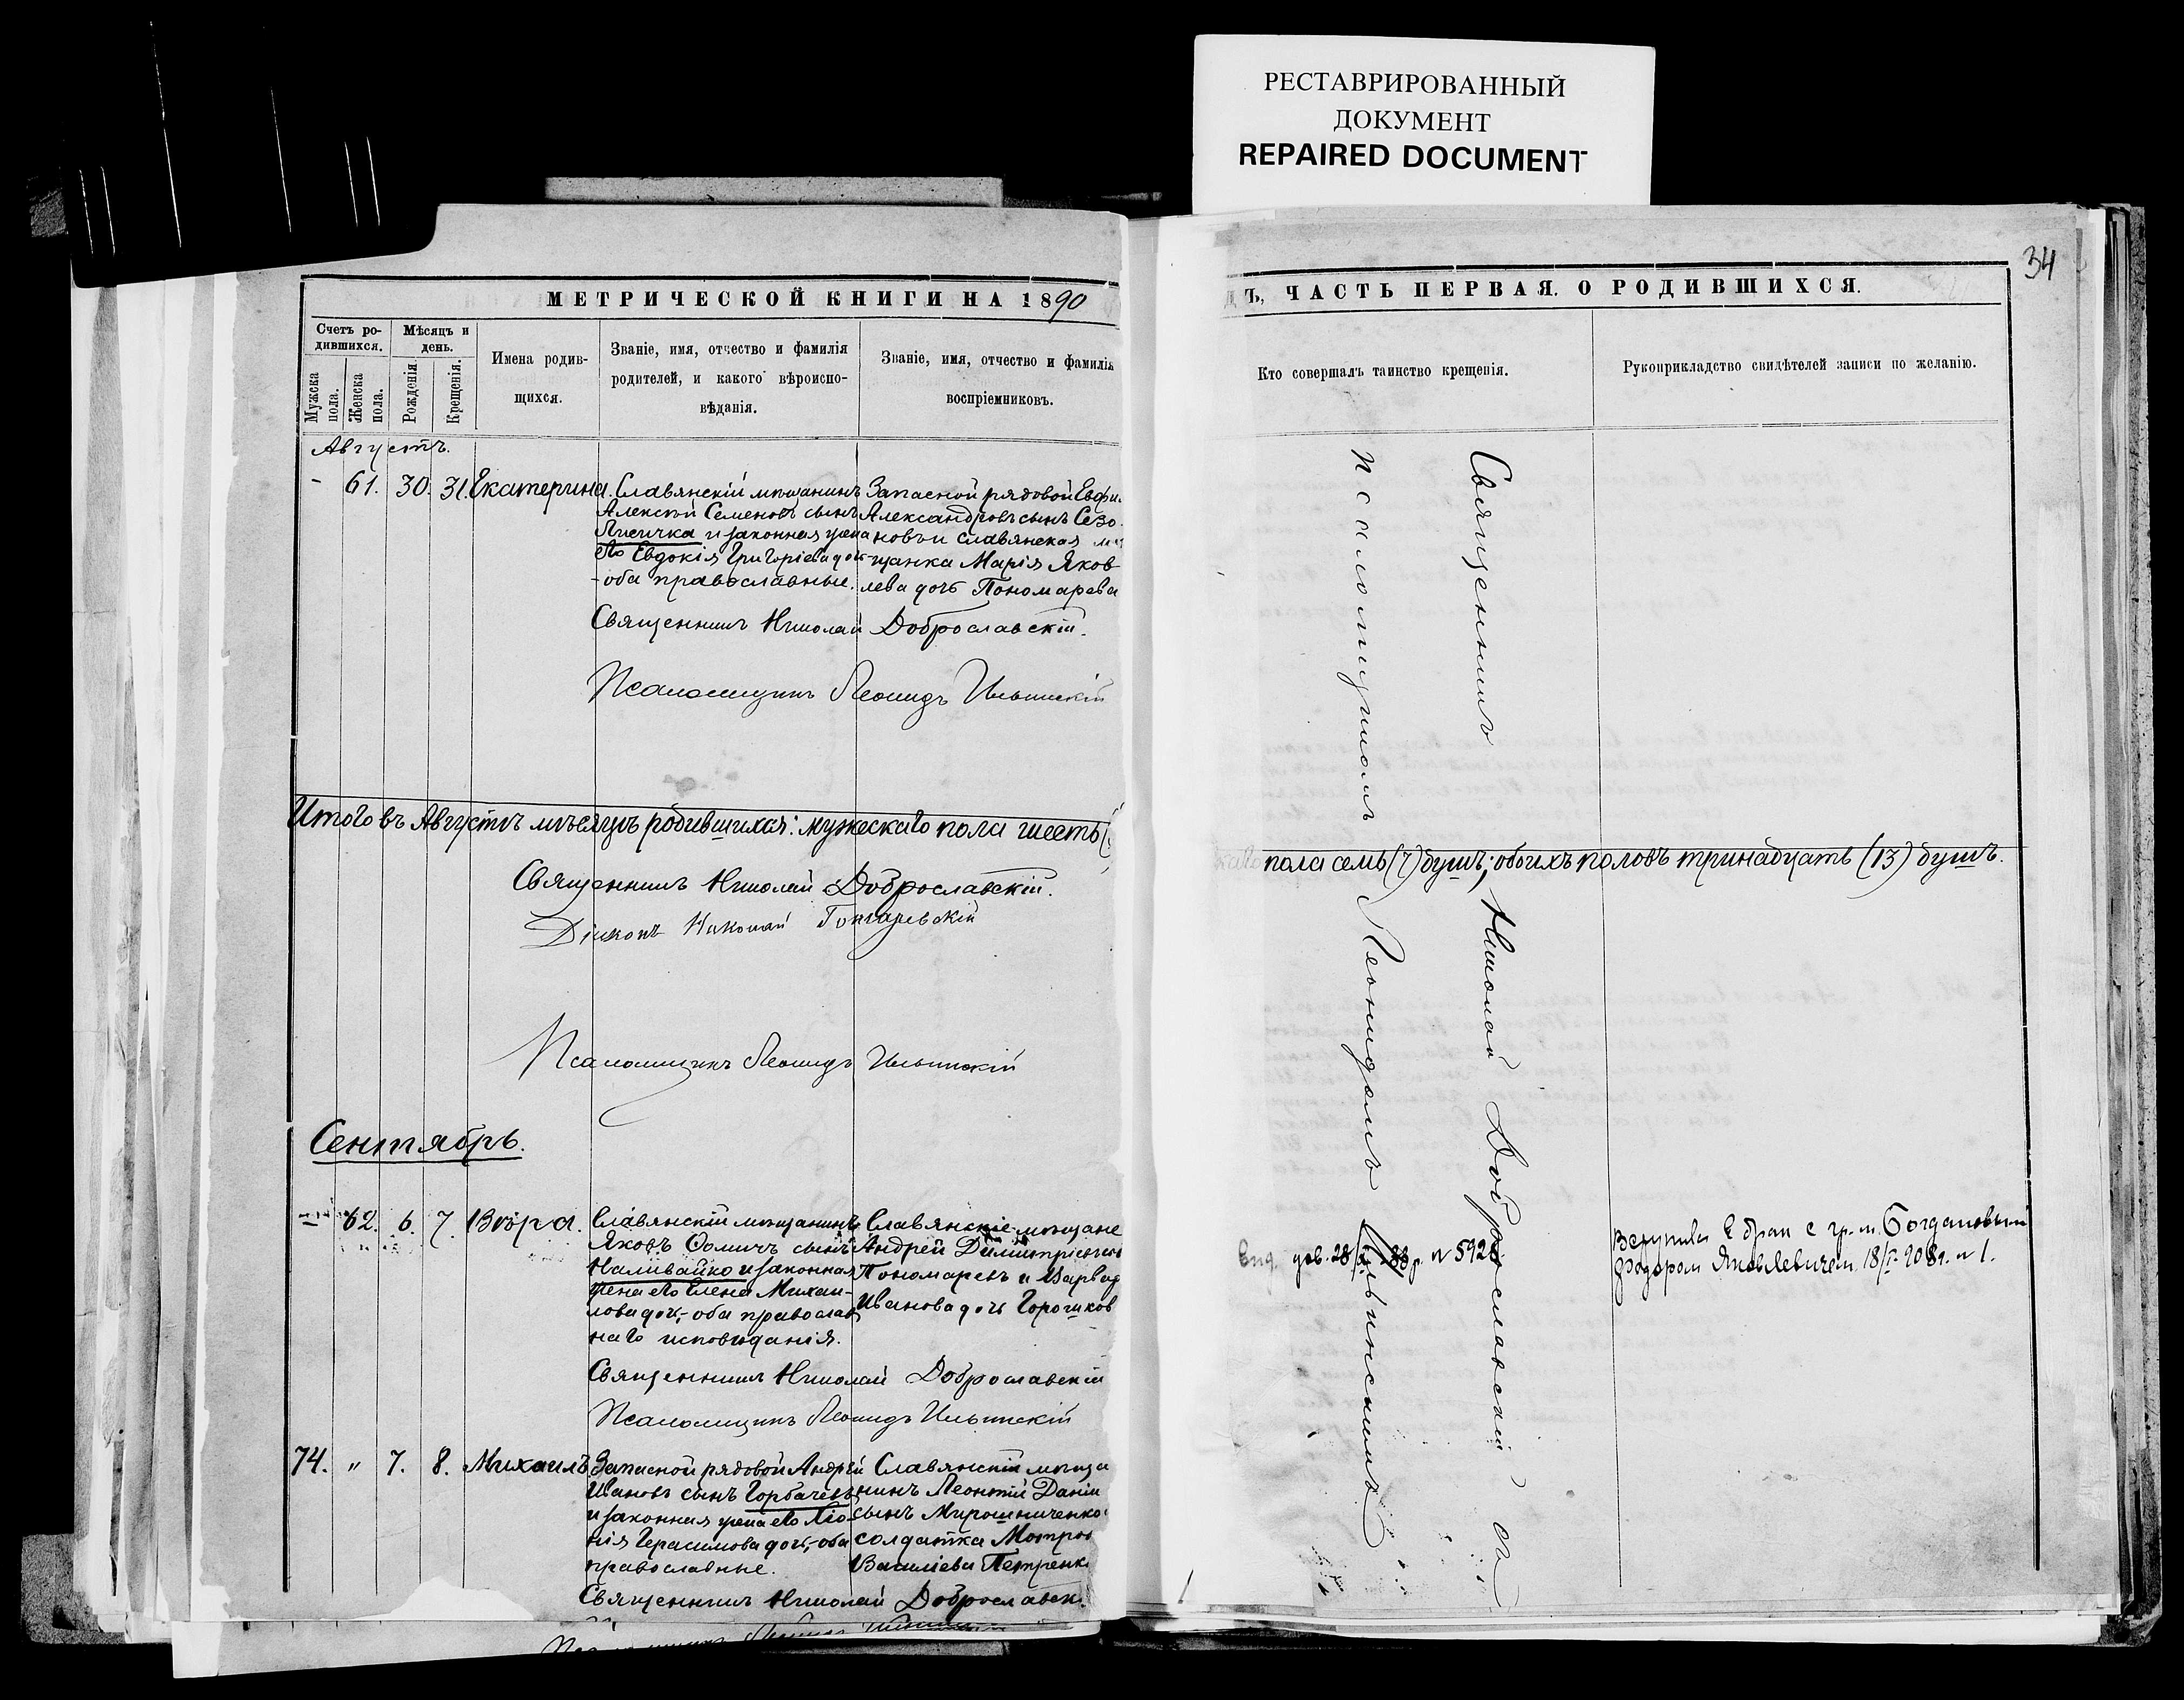 РЕСТАВРИРОВАННЫЙ
ДОКУМЕНТ
REPAIRED DOCUMENT
34
МЕТРИЧЕСКОЙ КНИГИ НА 1890
Счетъ ро-
дившихся.
Мужска
пола.
Женска
пола.
Мѣсяцъ и
день.
Рожденія.
Крещенія.
Имена родив-
щихся.
Званіе, имя, отчество и фамилія
родителей, и какого вѣроиспо-
вѣданія.
Званіе, имя, отчество и фамилія
воспріемниковъ.
Августъ.
- 61. 30. 31. Екатерина.
Славянскій мѣщанинъ
Алексѣй Семеновъ сынъ
Лисичка и законная жена
его Евдокія Григоріева дочь
- оба православные.
Запасной рядовой
Александровъ сынъ Сезо-
новъ и славянская
щанка Марія Яков-
лева дочь Пономарева
Священникъ Николай Доброславскій.
Псаломщикъ Леонидъ Ильинскій
Итого въ Августѣ мѣсяцѣ родившихся: мужескаго пола шесть (
Священникъ Николай Доброславскій.
Діаконъ Николай
Псаломщикъ Леонидъ Ильинскій
Сентябрь.
62. 6. 7. Вѣра.
Славянскій мѣщанинъ
Яковъ Ѳомичъ сынъ
Наливайко и законная
жена его Елена Михаи-
лова дочь, оба православ
наго исповѣданія.
Славянскіе мѣщане
Андрей Димитріевъ
Пономаревъ и Варвар
Иванова дочь
Священникъ Николай Доброславскій
Псаломщикъ Леонидъ Ильинскій
74. " 7. 8. Михаилъ.
Запасной рядовой Андрей
Ивановъ сынъ Горбачевъ
и законная жена его Хіо-
нія Герасимова дочь, оба
православные.
Славянскій мѣща
нинъ Леонтій Даніи
сынъ Мирошниченко
солдатка Матро
Василіева Петренк
Священникъ Николай Доброславск
ДЪ, ЧАСТЬ ПЕРВАЯ. О РОДИВШИХСЯ.
Кто совершалъ таинство крещенія.
Рукоприкладство свидѣтелей записи по желанію.
Священникъ Николай Доброславскій съ
псаломщикомъ Леонидомъ Ильинскимъ
пола семь (7) душъ; обоихъ половъ тринадцать (13) душъ.
№ 5928
Вступила в брак с гр-м. Богдановым
Федором Яковлевичем